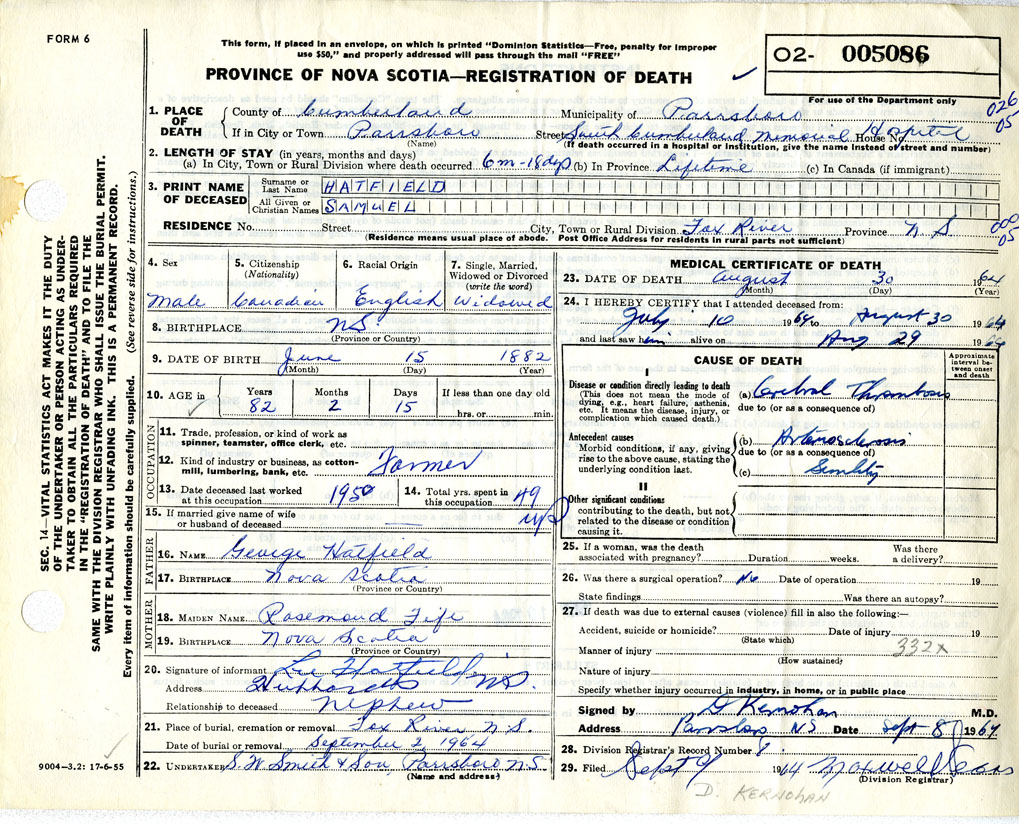 FORM 6
This form, if placed in an envelope, on which is printed "Dominion Statistics—Free, penalty for improper
use $50," and properly addressed will pass through the mail "FREE"
PROVINCE OF NOVA SCOTIA—REGISTRATION OF DEATH ✓
02- 005086
For use of the Department only
026
05
1. PLACE OF DEATH
County of Cumberland Municipality of Parrsboro
If in City or Town Parrsboro Street South Cumberland Memorial Hospital House No
(Name) (If death occurred in a hospital or institution, give the name instead of street and number)
2. LENGTH OF STAY (in years, months and days)
(a) In City, Town or Rural Division where death occurred 6m-18dys (b) In Province Lifetime (c) In Canada (if immigrant)
3. PRINT NAME OF DECEASED
Surname or Last Name HATFIELD
All Given or Christian Names SAMUEL
RESIDENCE No. Street City, Town or Rural Division Fox River Province N S
(Residence means usual place of abode. Post Office Address for residents in rural parts not sufficient)
05
4. Sex Male
5. Citizenship (Nationality) Canadian
6. Racial Origin English
7. Single, Married, Widowed or Divorced (write the word) Widowed
8. BIRTHPLACE NS
(Province or Country)
9. DATE OF BIRTH June 15 1882
(Month) (Day) (Year)
10. AGE in Years 82 Months 2 Days 15 If less than one day old hrs. or min.
OCCUPATION
11. Trade, profession, or kind of work as
spinner, teamster, office clerk, etc.
12. Kind of industry or business, as cotton-
mill, lumbering, bank, etc. Farmer
13. Date deceased last worked at this occupation 1950
14. Total yrs. spent in this occupation 49
15. If married give name of wife
or husband of deceased —
FATHER
16. NAME George Hatfield
17. BIRTHPLACE Nova Scotia
(Province or Country)
MOTHER
18. MAIDEN NAME Rosemond Fife
19. BIRTHPLACE Nova Scotia
(Province or Country)
20. Signature of informant Hatfield
Address NS.
Relationship to deceased Nephew
21. Place of burial, cremation or removal Fox River N S.
Date of burial or removal September 2, 1964
22. UNDERTAKER S. W. Smith & Son, Parrsboro N.S.
(Name and address)
MEDICAL CERTIFICATE OF DEATH
23. DATE OF DEATH August 30 1964
(Month) (Day) (Year)
24. I HEREBY CERTIFY that I attended deceased from:
July 10 1964 to August 30 1964
and last saw him alive on Aug 29 1964
CAUSE OF DEATH
Approximate interval between onset and death
I
Disease or condition directly leading to death
(This does not mean the mode of
dying, e.g., heart failure, asthenia,
etc. It means the disease, injury, or
complication which caused death.)
(a) Cerebral Thrombosis
due to (or as a consequence of)
Antecedent causes
Morbid conditions, if any, giving
rise to the above cause, stating the
underlying condition last.
(b) Arteriosclerosis
due to (or as a consequence of)
(c) Senility
II
Other significant conditions
contributing to the death, but not
related to the disease or condition
causing it.
25. If a woman, was the death
associated with pregnancy? Duration weeks. Was there a delivery?
26. Was there a surgical operation? No Date of operation 19
State findings Was there an autopsy?
27. If death was due to external causes (violence) fill in also the following:—
Accident, suicide or homicide? Date of injury 19
(State which)
Manner of injury 332x
(How sustained)
Nature of injury
Specify whether injury occurred in industry, in home, or in public place
Signed by D Kernohan M.D.
Address Parrsboro NS Date Sept 8 1964
28. Division Registrar's Record Number
29. Filed Sept 9 1964 Maxwell
(Division Registrar)
D. KERNOHAN
SEC. 14—VITAL STATISTICS ACT MAKES IT THE DUTY
OF THE UNDERTAKER OR PERSON ACTING AS UNDER-
TAKER TO OBTAIN ALL THE PARTICULARS REQUIRED
IN THE "REGISTRATION OF DEATH" AND TO FILE THE
SAME WITH THE DIVISION REGISTRAR WHO SHALL ISSUE THE BURIAL PERMIT.
WRITE PLAINLY WITH UNFADING INK. THIS IS A PERMANENT RECORD.
Every item of information should be carefully supplied. (See reverse side for instructions.)
9004-3.2: 17-6-55